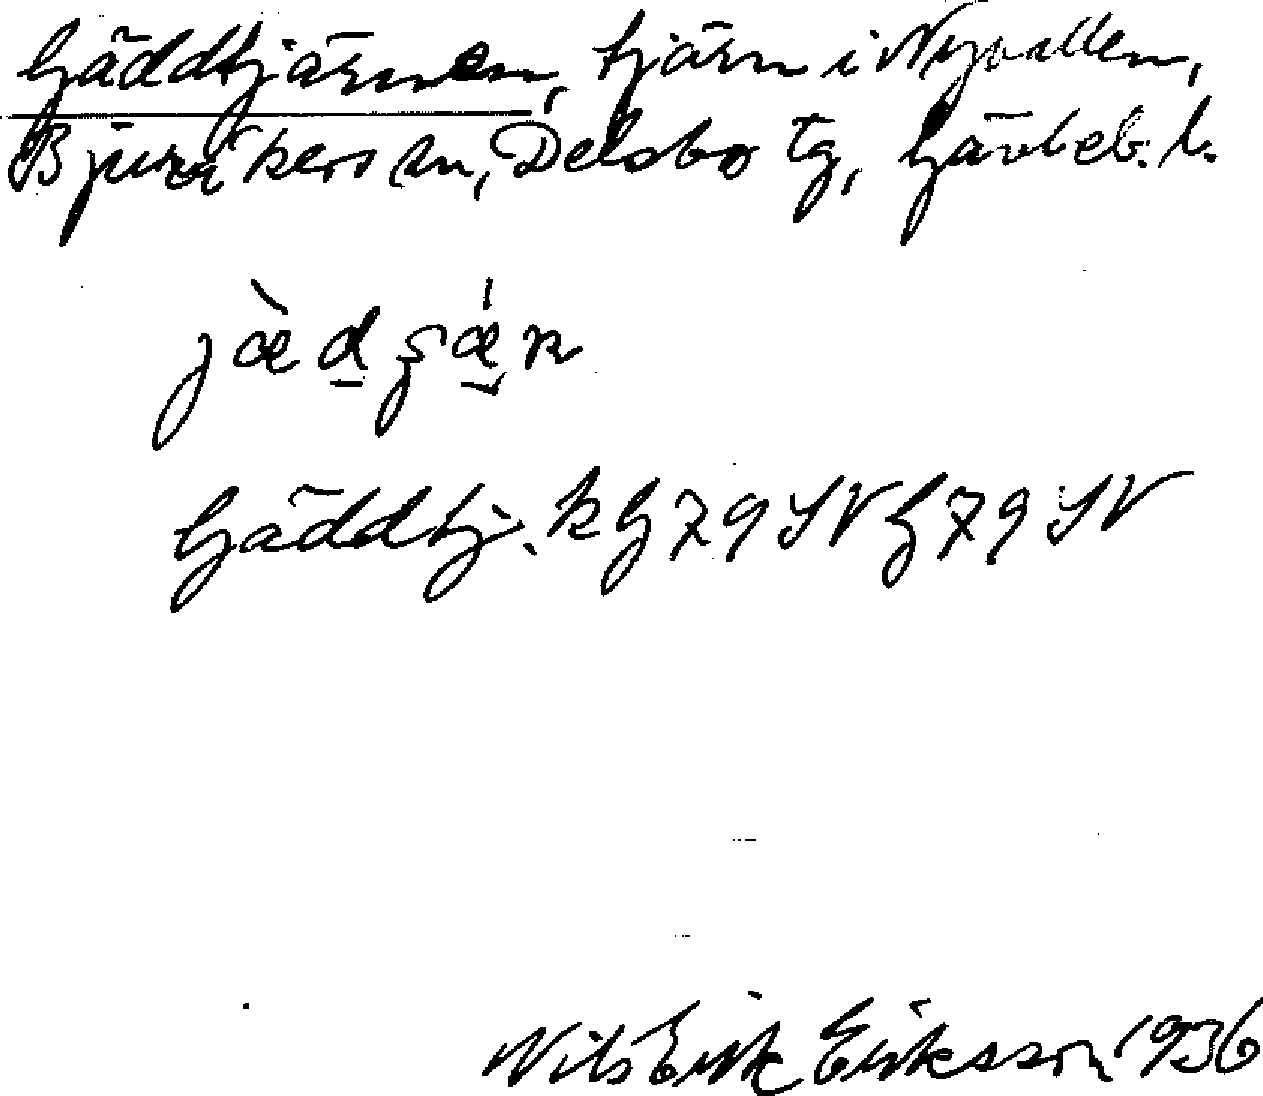 Gäddtjärnen, tjärn i Nyvallen,
Bjuråkers sn, Delsbo tg, Gävleb. l.
jæ̀d ʂǽn
Gäddtj. k G 79 SV G 79 SV
Nils Erik Eriksson 1936